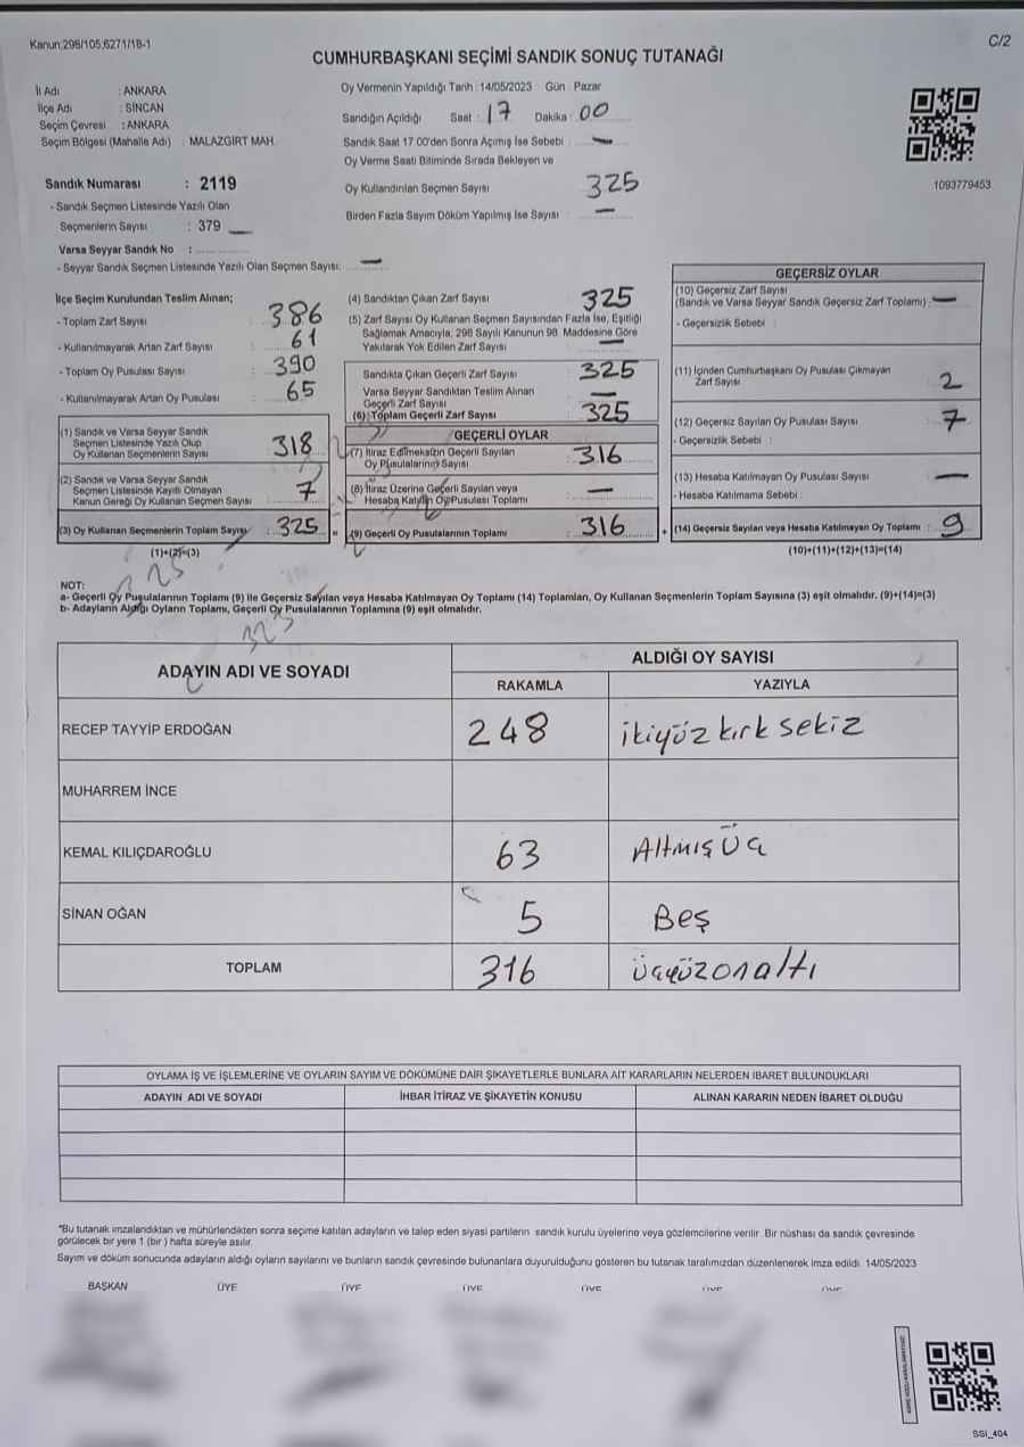 Kanun:298/105,6271/18-1
C/2
CUMHURBAŞKANI SEÇİMİ SANDIK SONUÇ TUTANAĞI
İl Adı : ANKARA
İlçe Adı : SİNCAN
Seçim Çevresi : ANKARA
Seçim Bölgesi (Mahalle Adı) : MALAZGİRT MAH.
Sandık Numarası : 2119
- Sandık Seçmen Listesinde Yazılı Olan
Seçmenlerin Sayısı : 379
Varsa Seyyar Sandık No :
- Seyyar Sandık Seçmen Listesinde Yazılı Olan Seçmen Sayısı: —
Oy Vermenin Yapıldığı Tarih : 14/05/2023 Gün : Pazar
Sandığın Açıldığı Saat : 17 Dakika : 00
Sandık Saat 17.00'den Sonra Açılmış İse Sebebi : —
Oy Verme Saati Bitiminde Sırada Bekleyen ve
Oy Kullandırılan Seçmen Sayısı 325
Birden Fazla Sayım Döküm Yapılmış İse Sayısı : —
1093779453
İlçe Seçim Kurulundan Teslim Alınan;
- Toplam Zarf Sayısı : 386
- Kullanılmayarak Artan Zarf Sayısı : 61
- Toplam Oy Pusulası Sayısı : 390
- Kullanılmayarak Artan Oy Pusulası : 65
(1) Sandık ve Varsa Seyyar Sandık
Seçmen Listesinde Yazılı Olup
Oy Kullanan Seçmenlerin Sayısı 318
(2) Sandık ve Varsa Seyyar Sandık
Seçmen Listesinde Kayıtlı Olmayan
Kanun Gereği Oy Kullanan Seçmen Sayısı 7
(3) Oy Kullanan Seçmenlerin Toplam Sayısı : 325
(1)+(2)=(3)
(4) Sandıktan Çıkan Zarf Sayısı 325
(5) Zarf Sayısı Oy Kullanan Seçmen Sayısından Fazla İse, Eşitliği
Sağlamak Amacıyla, 298 Sayılı Kanunun 98. Maddesine Göre
Yakılarak Yok Edilen Zarf Sayısı —
Sandıkta Çıkan Geçerli Zarf Sayısı 325
Varsa Seyyar Sandıktan Teslim Alınan
Geçerli Zarf Sayısı —
(6) Toplam Geçerli Zarf Sayısı 325
GEÇERLİ OYLAR
(7) İtiraz Edilmeksizin Geçerli Sayılan
Oy Pusulalarının Sayısı 316
(8) İtiraz Üzerine Geçerli Sayılan veya
Hesaba Katılan Oy Pusulası Toplamı —
(9) Geçerli Oy Pusulalarının Toplamı : 316
GEÇERSİZ OYLAR
(10) Geçersiz Zarf Sayısı
(Sandık ve Varsa Seyyar Sandık Geçersiz Zarf Toplamı) : —
- Geçersizlik Sebebi :
(11) İçinden Cumhurbaşkanı Oy Pusulası Çıkmayan
Zarf Sayısı 2
(12) Geçersiz Sayılan Oy Pusulası Sayısı 7
- Geçersizlik Sebebi :
(13) Hesaba Katılmayan Oy Pusulası Sayısı —
- Hesaba Katılmama Sebebi :
(14) Geçersiz Sayılan veya Hesaba Katılmayan Oy Toplamı : 9
(10)+(11)+(12)+(13)=(14)
325
NOT:
a- Geçerli Oy Pusulalarının Toplamı (9) ile Geçersiz Sayılan veya Hesaba Katılmayan Oy Toplamı (14) Toplamları, Oy Kullanan Seçmenlerin Toplam Sayısına (3) eşit olmalıdır. (9)+(14)=(3)
b- Adayların Aldığı Oyların Toplamı, Geçerli Oy Pusulalarının Toplamına (9) eşit olmalıdır.
323
ADAYIN ADI VE SOYADI
ALDIĞI OY SAYISI
RAKAMLA YAZIYLA
RECEP TAYYİP ERDOĞAN 248 ikiyüz kırk sekiz
MUHARREM İNCE
KEMAL KILIÇDAROĞLU 63 Altmış üç
SİNAN OĞAN 5 Beş
TOPLAM 316 üçyüzonaltı
OYLAMA İŞ VE İŞLEMLERİNE VE OYLARIN SAYIM VE DÖKÜMÜNE DAİR ŞİKAYETLERLE BUNLARA AİT KARARLARIN NELERDEN İBARET BULUNDUKLARI
ADAYIN ADI VE SOYADI İHBAR İTİRAZ VE ŞİKAYETİN KONUSU ALINAN KARARIN NEDEN İBARET OLDUĞU
*Bu tutanak imzalandıktan ve mühürlendikten sonra seçime katılan adayların ve talep eden siyasi partilerin sandık kurulu üyelerine veya gözlemcilerine verilir. Bir nüshası da sandık çevresinde
görülecek bir yere 1 (bir ) hafta süreyle asılır.
Sayım ve döküm sonucunda adayların aldığı oyların sayılarını ve bunların sandık çevresinde bulunanlara duyurulduğunu gösteren bu tutanak tarafımızdan düzenlenerek imza edildi. 14/05/2023
BAŞKAN ÜYE ÜYE ÜYE ÜYE ÜYE ÜYE
SSI_404